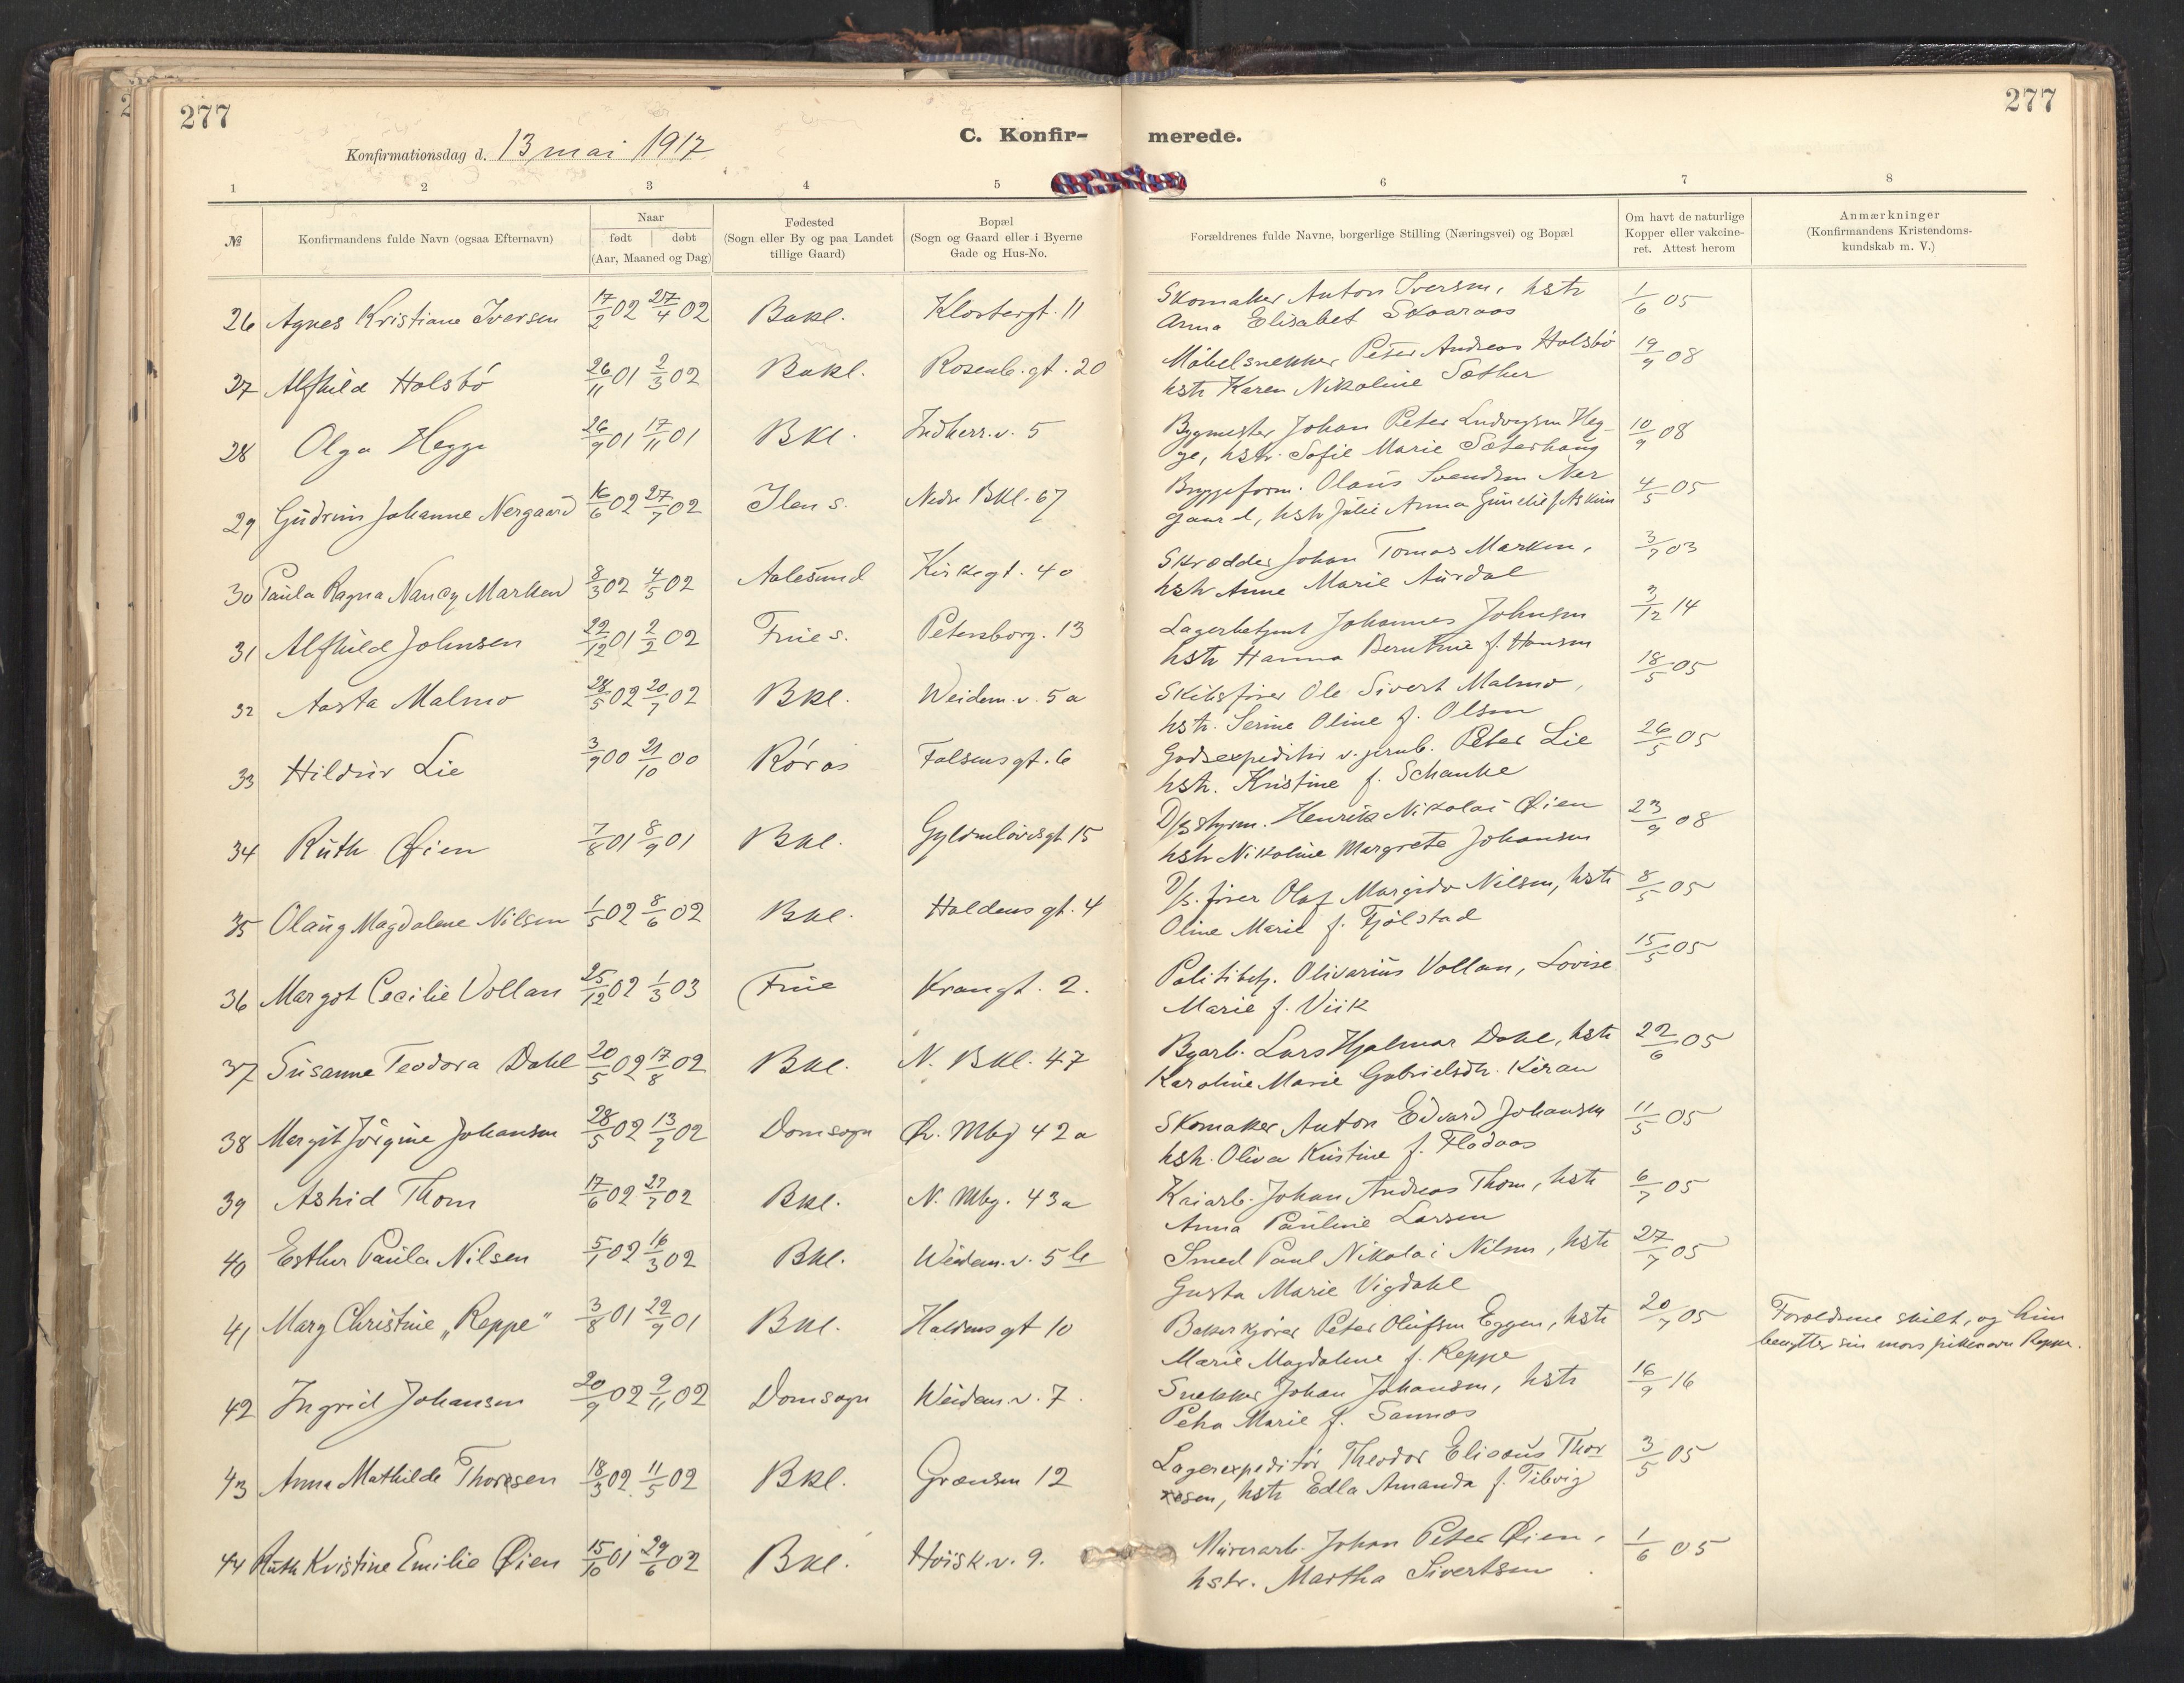 277
277
Konfirmationsdag d. 13 mai 1917
C. Konfir-
merede.
1 2 3 4 5 6 7 8
№ Konfirmandens fulde Navn (ogsaa Efternavn)
Naar
født døbt
(Aar, Maaned og Dag)
Fødested
(Sogn eller By og paa Landet
tillige Gaard)
Bopæl
(Sogn og Gaard eller i Byerne
Gade og Hus-No.
Forældrenes fulde Navne, borgerlige Stilling (Næringsvei) og Bopæl
Om havt de naturlige
Kopper eller vakcine-
ret. Attest herom
Anmærkninger
(Konfirmandens Kristendoms-
kundskab m. V.)
26 Agnes Kristiane Iversen 17/2 02 27/4 02 Bakl. Klostergt. 11
Skomaker Anton Iversen, hstr 1/6 05
Anna Elisabet Skaaraas
27 Alfhild Holsbö 26/11 01 2/3 02 Bakl. Rosenb. gt. 20
Möbelsnekker Peter Andreas Holsbö 19/9 08
hstr Karen Nikoline Sæther
28 Olga Hegge 26/9 01 17/11 01 BKl. Indherr. v. 5
Bygmester Johan Peter Ludvigsen Heg- 10/9 08
ge, hstr. Sofie Marie Sæterhaug
29 Gudrun Johanne Nergaard 16/6 02 27/7 02 Ilen s. Nedre Bkl. 67
Bryggeform. Olaus Svendsen Ner 4/5 05
gaard, hstr Julie Anna
30 Paula Ragna Nancy Marken 8/3 02 4/5 02 Aalesund Kirkegt. 40
Skrædder Johan Tomas Marken, 3/7 03
hstr Anne Marie Aurdal
31 Alfhild Johnsen 22/12 01 2/2 02 Frue s. Petersborg. 13
Lagerbetjent Johannes Johnsen 3/12 14
hstr Hanna Berntine f. Hansen
32 Aasta Malmo 28/5 02 20/7 02 Bkl. Weidem. v. 5a
Skibsfører Ole Sivert Malmo, 18/5 05
hstr. Serine Oline f. Olsen
33 Hildur Lie 3/9 00 21/10 00 Röros Falsens gt. 6
Godsexpeditör v. jernb. Peter Lie 26/5 05
hstr. Kristine f. Schanke
34 Ruth Øien 7/8 01 8/9 01 Bkl. Gyldenlövesgt 15
D/s styrm. Henrik Nikolai Øien 23/9 08
hstr Nikoline Margrete Johansen
35 Olaug Magdalene Nilsen 1/5 02 8/6 02 Bkl. Haldens gt. 4
D/s. fører Olaf Margido Nilsen, hstr 8/5 05
Oline Marie f. Fjölstad
36 Margot Cecilie Vollan 25/12 02 1/3 03 Frue Krangt. 2.
Politibetj. Olivarius Vollan, Lovise 15/5 05
Marie f. Viik
37 Susanne Teodora Dahl 20/5 02 17/8 02 Bkl. N. Bkl. 47
Byarb. Lars Hjalmar Dahl, hstr 22/6 05
Karoline Marie Gabrielsdtr. Kiran
38 Margit Jörgine Johansen 28/5 02 13/7 02 Domsogn Ø. Mbg 42a
Skomaker Anton Edvard Johansen 11/5 05
hstr. Oliva Kristine f. Flodaas
39 Astrid Thom 17/6 02 27/7 02 Bkl. N. Mbg. 43a
Kaiarb. Johan Andreas Thom, hstr 6/7 05
Anna Pauline Larsen
40 Esther Paula Nilsen 5/1 02 16/3 02 Bkl. Weidem. v. 5 b
Smed Paul Nikolai Nilsen, hstr 27/7 05
Gusta Marie Vigdahl
41 Mary Christine „Reppe" 3/8 01 22/9 01 Bkl. Haldensgt 10
Bakerkjører Peter Olufsen Eggen, hstr 20/7 05 Forældrene skilt, og hun
Marie Magdalene f. Reppe benytter sin mors pikenavn Reppe.
42 Ingrid Johansen 20/9 02 2/11 02 Domsogn Weidem. v. 7.
Snekker Johan Johansen, hstr 16/9 16
Petra Marie f. Sannes
43 Anna Mathilde Thoresen 18/3 02 11/5 02 Bkl. Grænsen 12
Lagerexpeditör Theodor Elisæus Thor 3/5 05
esen, hstr Edla Amanda f. Tibvig
44 Ruth Kristine Emilie Øien 15/10 01 29/6 02 Bkl. Hoisk. v. 9.
Murerarb. Johan Peter Øien, 1/6 05
hstr. Martha Sivertsen